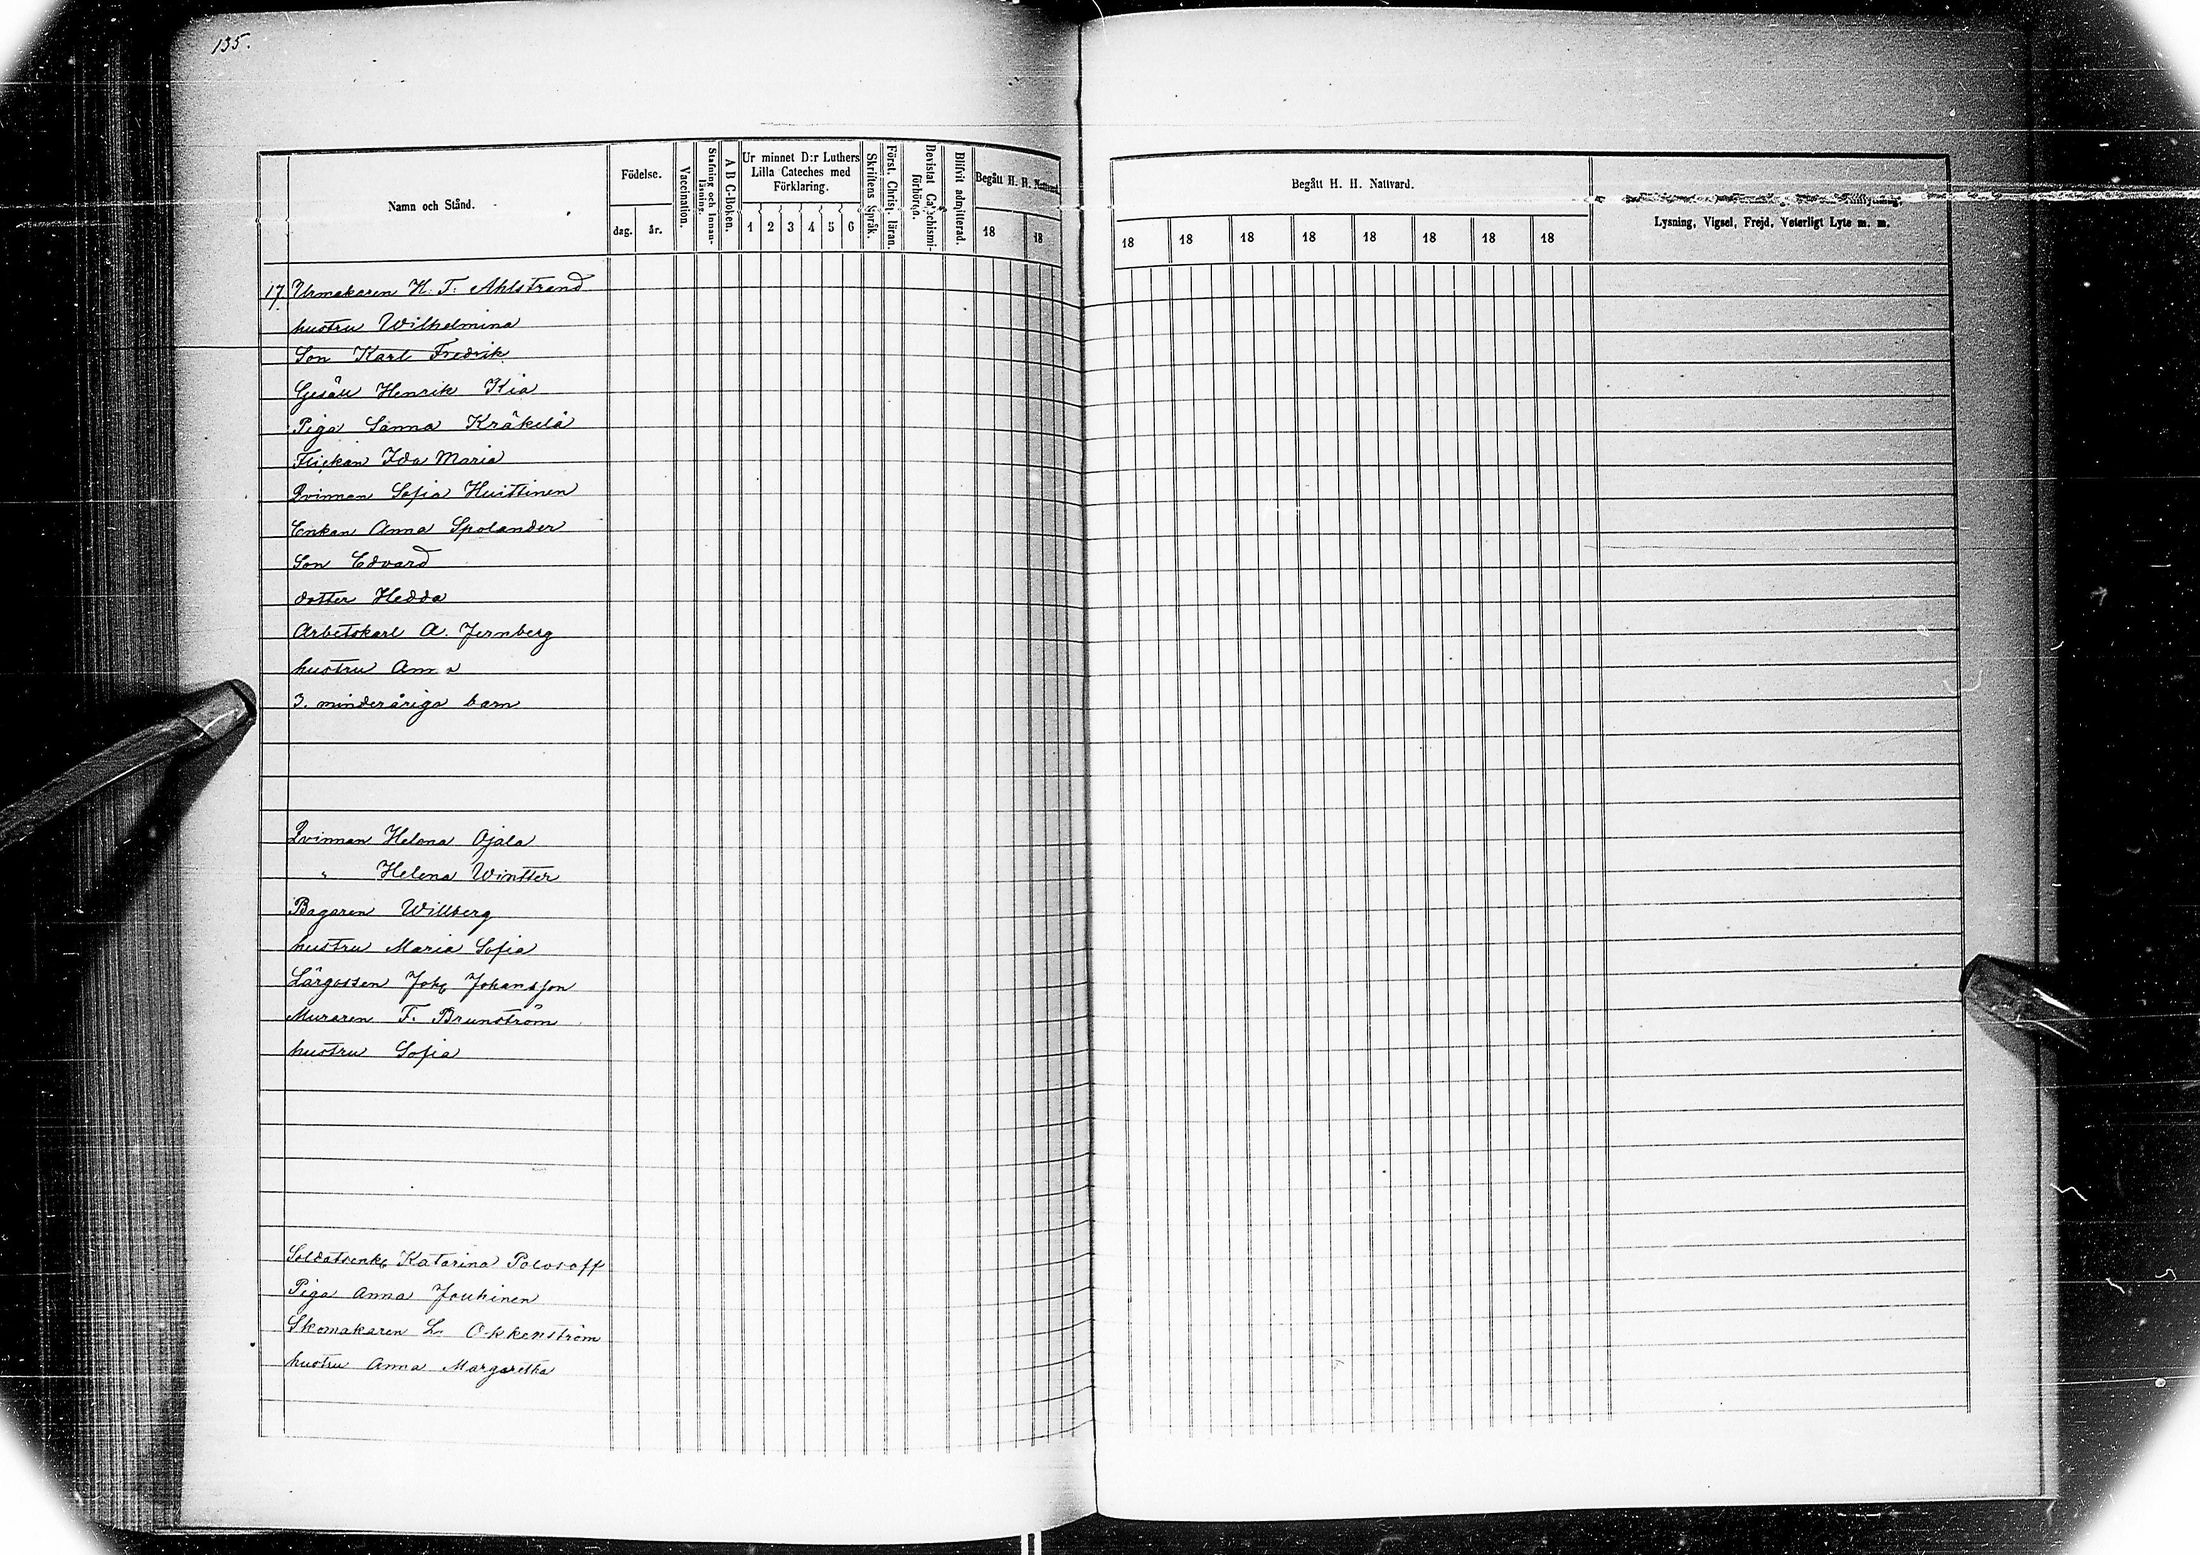 135.
Namn och Stånd.
Födelse.
dag.
år.
Vaccination.
Stafning och Innan-
läsning.
A B C-Boken.
Ur minnet D:r Luthers
Lilla Cateches med
Förklaring.
1 2 3 4 5 6
Skriftens Språk.
Först. Christ. läran.
Bevistat Catechismi-
förhören.
Blifvit admitterad.
Begått H. H. Nattvard.
18 18
Begått H. H. Nattvard.
18 18 18 18 18 18 18 18
Lysning, Vigsel, Frejd, Veterligt Lyte m. m.
17. Urmakaren H. T. Ahlstrand
hustru Wilhelmina
Son Karl Fredrik
Gesäll Henrik Kia
Piga Sanna Kräkelä
Flickan Ida Maria
Qvinnan Sofia Huittinen
Enkan Anna Spolander
Son Edvard
dotter Hedda
Arbetskarl A. Jernberg
hustru Anna
3. minderåriga barn
Qvinnan Helena Ojala
" Helena Wintter
Bagaren Willberg
hustru Maria Sofia
Lärgossen Joh Johansson
Muraren F. Brunström
hustru Sofia
Soldatsenk Katarina Polosoff
Piga Anna Jouhinen
Skomakaren L. Okkenström
hustru Anna Margaretha